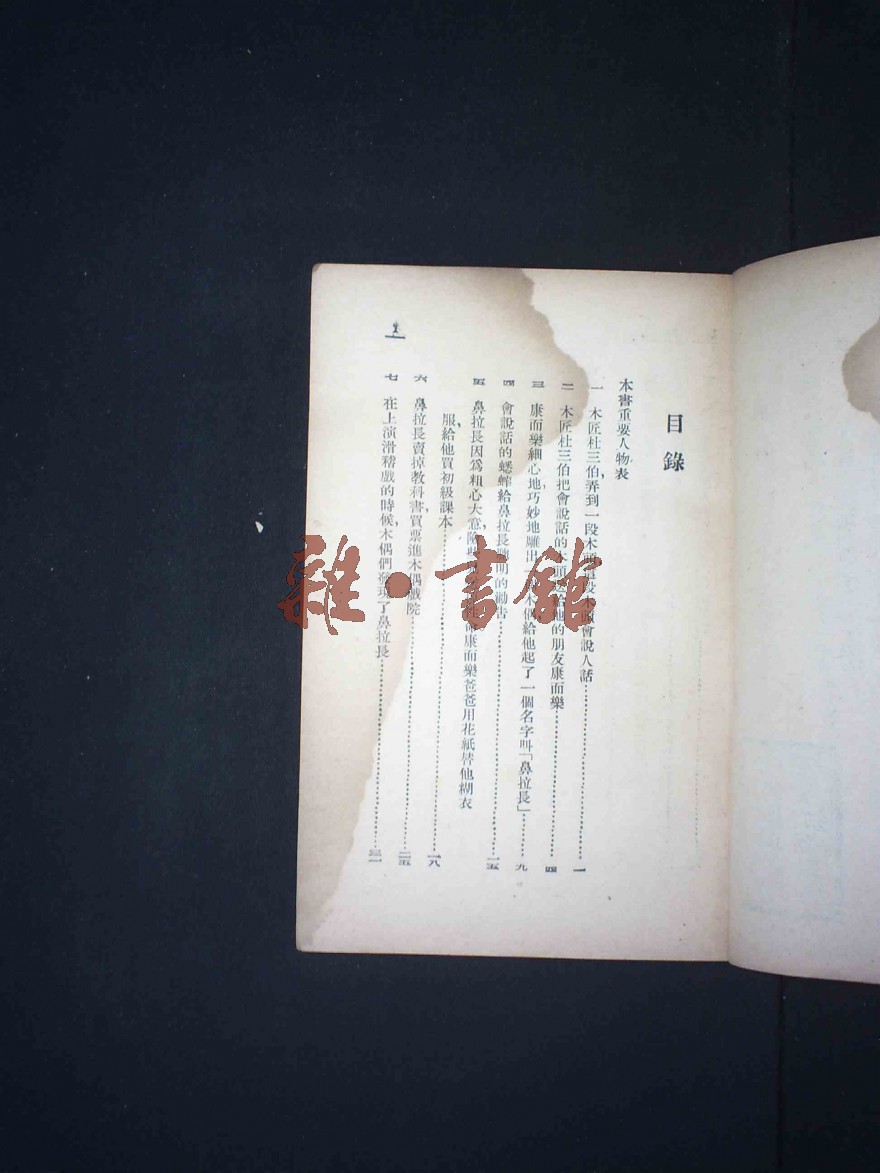 目錄
本書重要人物表
一 木匠杜三伯,弄到一段木頭,這段木頭會說人話………一
二 木匠杜三伯把會說話的木頭送給他的朋友康而樂………四
三 康而樂細心地,巧妙地雕出 木偶給他起了一個名字叫「鼻拉長」………九
四 會說話的蟋蟀給鼻拉長聰明的勸告………一五
五 鼻拉長因爲粗心大意, 康而樂爸爸用花紙替他糊衣
服,給他買初級課本………一八
六 鼻拉長賣掉教科書,買票進木偶戲院………二五
七 在上演滑稽戲的時候,木偶們發現了鼻拉長………三一
雜·書館